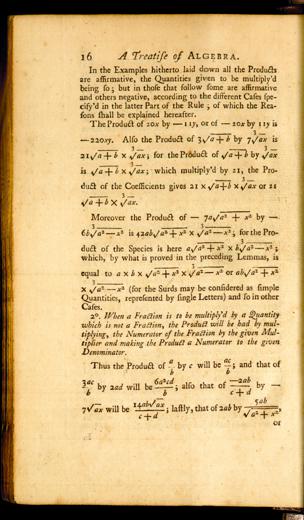 16 A Treatise of ALGEBRA.
In the Examples hitherto laid down all the Products
are affirmative, the Quantities given to be multiply'd
being so; but in those that follow some are affirmative
and others negative, according to the different Cases spe-
cify'd in the latter Part of the Rule; of which the Rea-
sons shall be explained hereafter.
The Product of 20x by — 11y, or of — 20x by 11y is
— 220xy. Also the Product of 3√a+b by 7∛ax is
21√a+b × ∛ax; for the Product of √a+b by ∛ax
is √a+b × ∛ax; which multiply'd by 21, the Pro-
duct of the Coefficients gives 21 × √a+b × ∛ax or 21
√a+b × ∛ax.
Moreover the Product of — 7a√a² + x² by —
6b∛a²—x² is 42ab√a²+x² × ∛a²—x²; for the Pro-
duct of the Species is here a√a² + x² × b∛a²—x²;
which, by what is proved in the preceding Lemmas, is
equal to a × b × √a² + x² × ∛a²—x² or ab√a² + x²
× ∛a²—x² (for the Surds may be considered as simple
Quantities, represented by single Letters) and so in other
Cases.
2°. When a Fraction is to be multiply'd by a Quantity
which is not a Fraction, the Product will be had by mul-
tiplying, the Numerator of the Fraction by the given Mul-
tiplier and making the Product a Numerator to the given
Denominator.
Thus the Product of a/b by c will be ac/b; and that of
3ac/b by 2ad will be 6a²cd/b; also that of —2ab/c+d by —
7√ax will be 14ab√ax/c+d; lastly, that of 2ab by 5ab/√a²+x²,
or